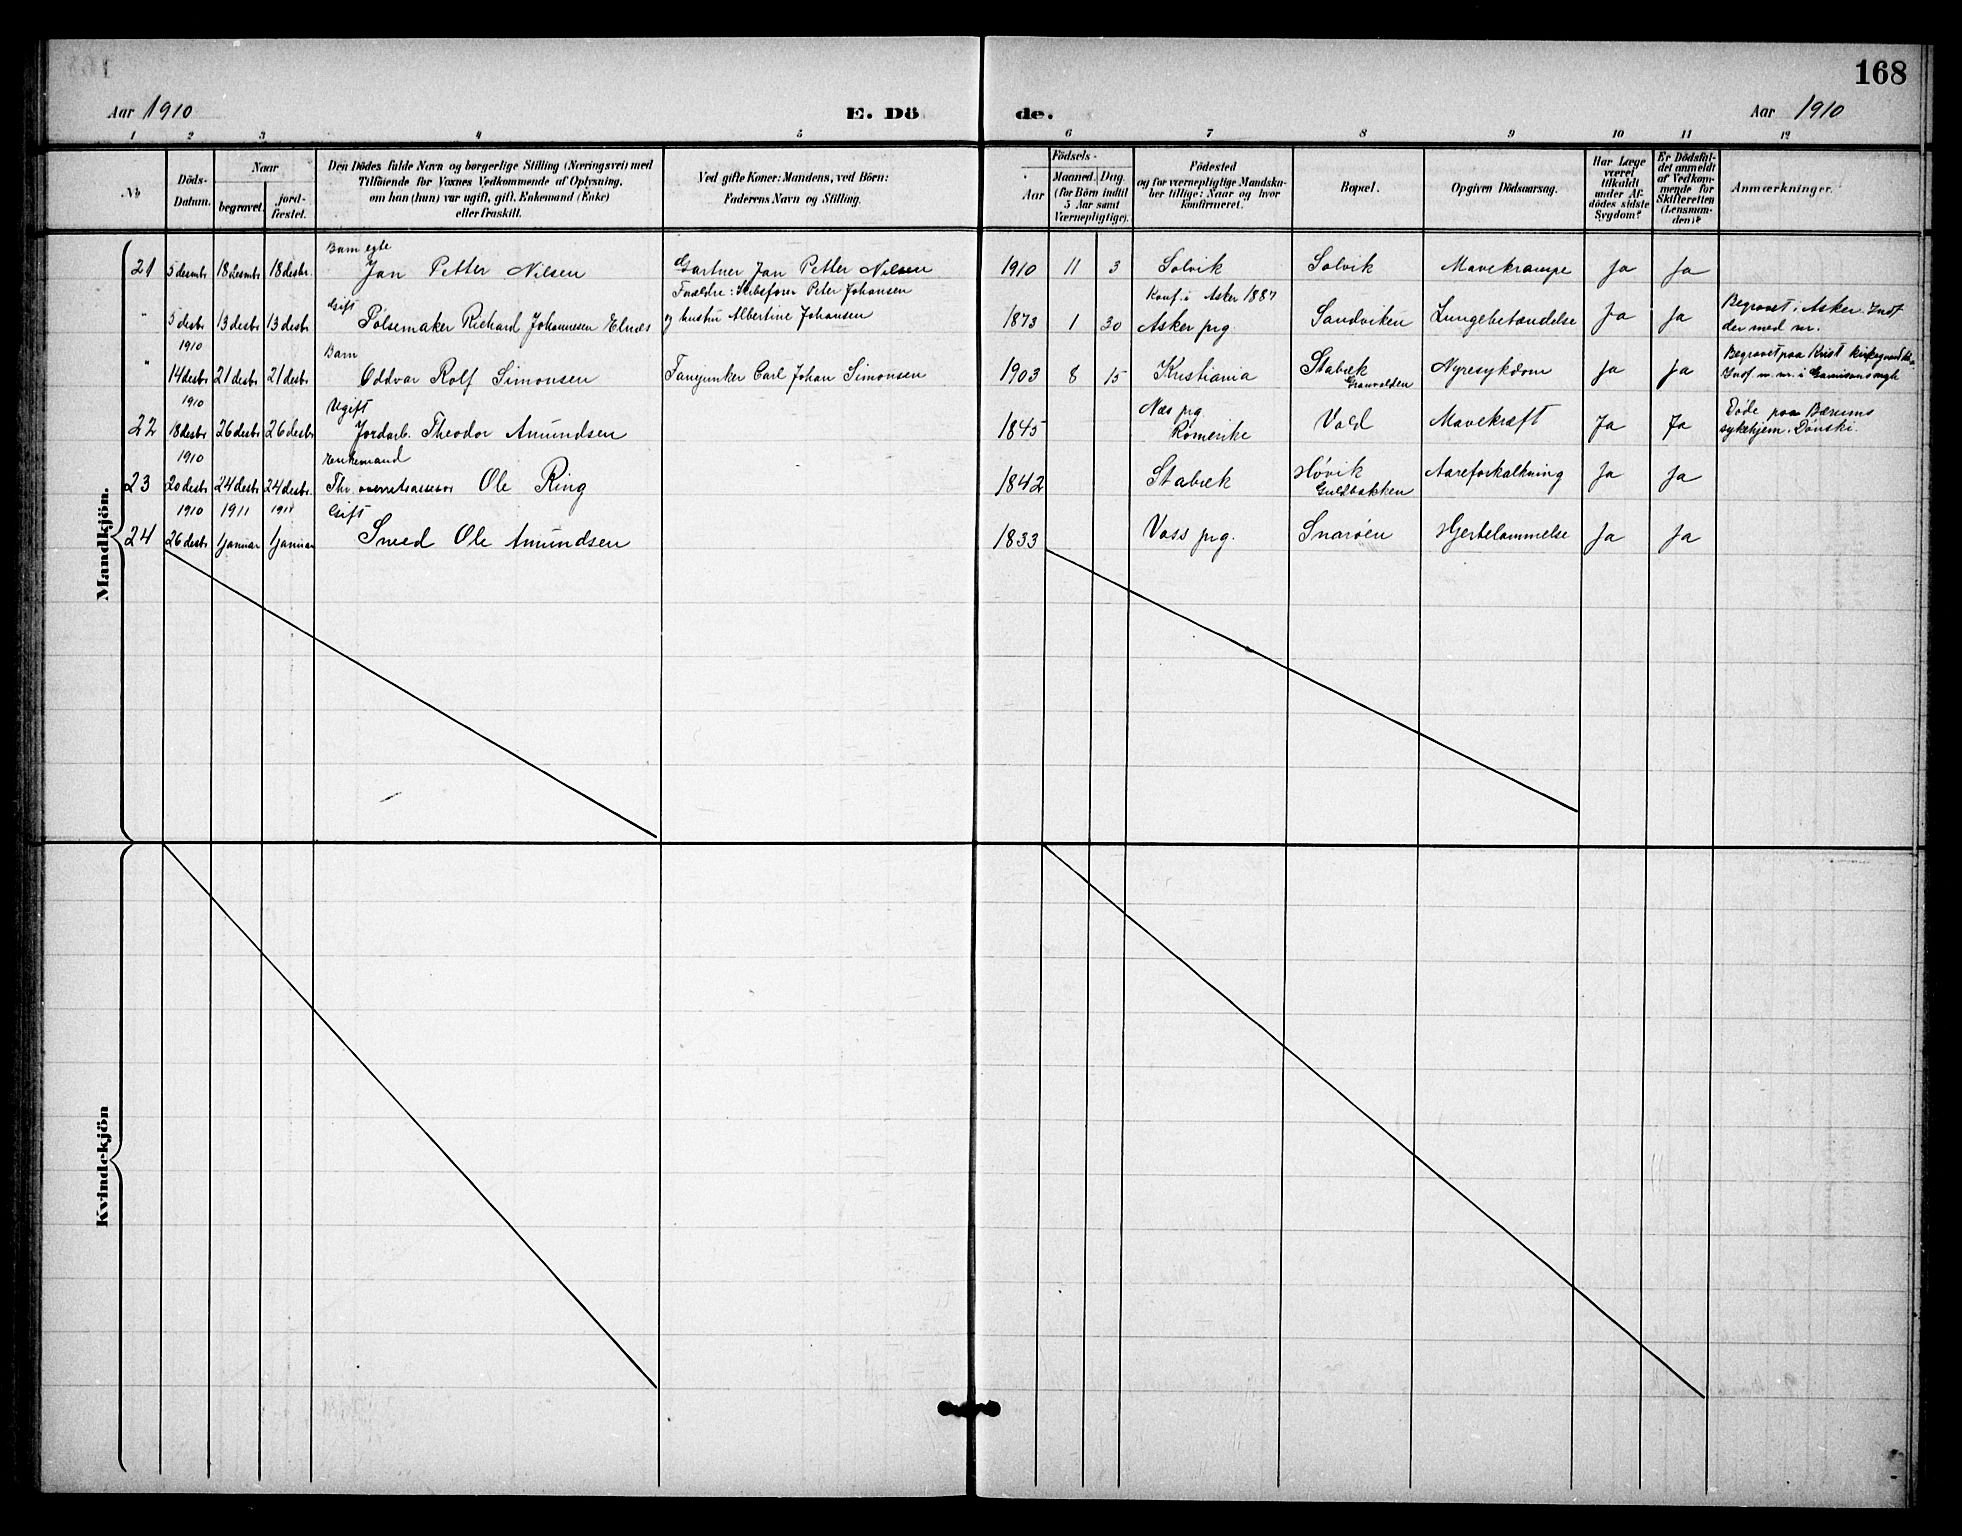 168
Aar 1910
E. Dö de.
Aar 1910
1 2 3 4 5 6 7 8 9 10 11 12
No
Döds-
Datum.
Naar
begravet.
jord-
fæstet.
Den Dödes fulde Navn og borgerlige Stilling (Næringsvei) med
Tilföiende for Voxnes Vedkommende af Oplysning,
om han (hun) var ugift, gift, Enkemand (Enke)
eller fraskilt.
Ved gifte Koner: Mandens, ved Börn:
Faderens Navn og Stilling.
Födsels-
Aar
Maaned. Dag.
(for Börn indtil
5 Aar samt
Værnepligtige).
Födested
og for værnepligtige Mandska-
ber tillige: Naar og hvor
konfirmeret.
Bopæl.
Opgiven Dödsaarsag.
Har Læge
været
tilkaldt
under Af-
dödes sidste
Sygdom?
Er Dödsfal-
det anmeldt
af Vedkom-
mende for
Skifteretten
(Lensman-
den)?
Anmærkninger.
Mandkjön.
Barn egte
21 5 desmbr 18 desmbr 18 desbr. Jan Petter Nilsen Gartner Jan Petter Nilsen 1910 11 3 Solvik Solvik Mavekrampe Ja Ja
Gift Forældre: Skibsfører Peter Johansen Konf. i Asker 1887 Begravet i Asker. Indf
" 5 desbr 13 desbr 13 desbr Pølsemaker Richard Johannesen Elnæs og hustru Albertine Johansen 1873 1 30 Asker prg. Sandviken Lungebetændelse Ja Ja der med nr.
1910 Barn Begravet paa Krist
" 14 desbr 21 desbr 21 desbr Oddvar Rolf Simonsen Fanejunker Carl Johan Simonsen 1903 8 15 Kristiania Stabæk Nyresykdom Ja Ja Indf. m. nr. i
Granvolden
1910 Ugift Næs prg. Døde paa Bærums
22 18 desbr 26 desbr 26 desbr Jordarb. Theodor Amundsen 1845 Romerike Vold Mavekræft Ja Ja sykehjem. Dønski.
1910 Enkemand
23 20 desbr 24 desbr 24 desbr. Fhv. overretsassessor Ole Ring 1842 Stabæk Høvik Aareforkalkning Ja Ja
Guldbakken
1910 1911 1911 Gift
24 26 desbr 1 januar 1 januar Smed Ole Amundsen 1833 Voss prg. Snarøen Hjertelammelse Ja Ja
Kvindekjön